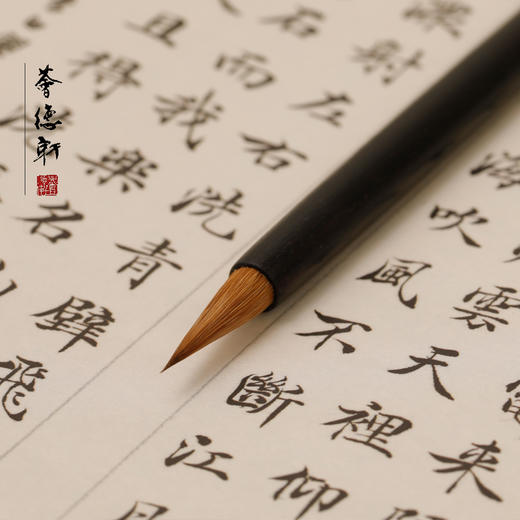 薈德軒
來
雲天裡仰
海吹風不斷江
射左右洗青壁飛
石而我樂名
且得